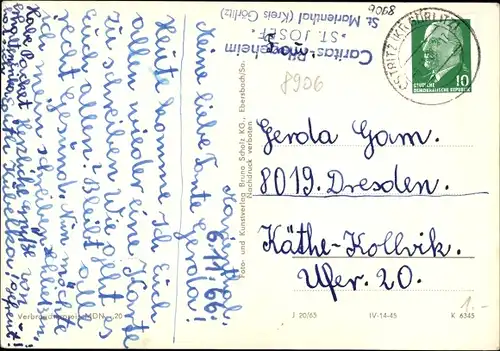 Caritas-Pflegeheim
"ST. JOSEF"
St. Marienthal (Kreis Görlitz)
8906
8906
OSTRITZ (KR GÖRLITZ)
10
DEUTSCHE
DEMOKRATISCHE REPUBLIK
Marienthal,
6.11.66.
Meine liebe Tante Gerda!
Heute komme ich Euch
allen wieder eine Karte
zu schreiben. Wie geht es
Euch allen? Bleibt alle
recht Gesund. Nun möchte
ich mein schreiben schließen.
Herzliche Grüße von
Foto- und Kunstverlag Bruno Scholz KG., Ebersbach/Sa.
Nachdruck verboten
Gerda Gam.
8019. Dresden.
Käthe-Kollwik.
Ufer. 20.
1.-
Verbraucherpreis MDN -,20
J 20/65
IV-14-45
K 6345